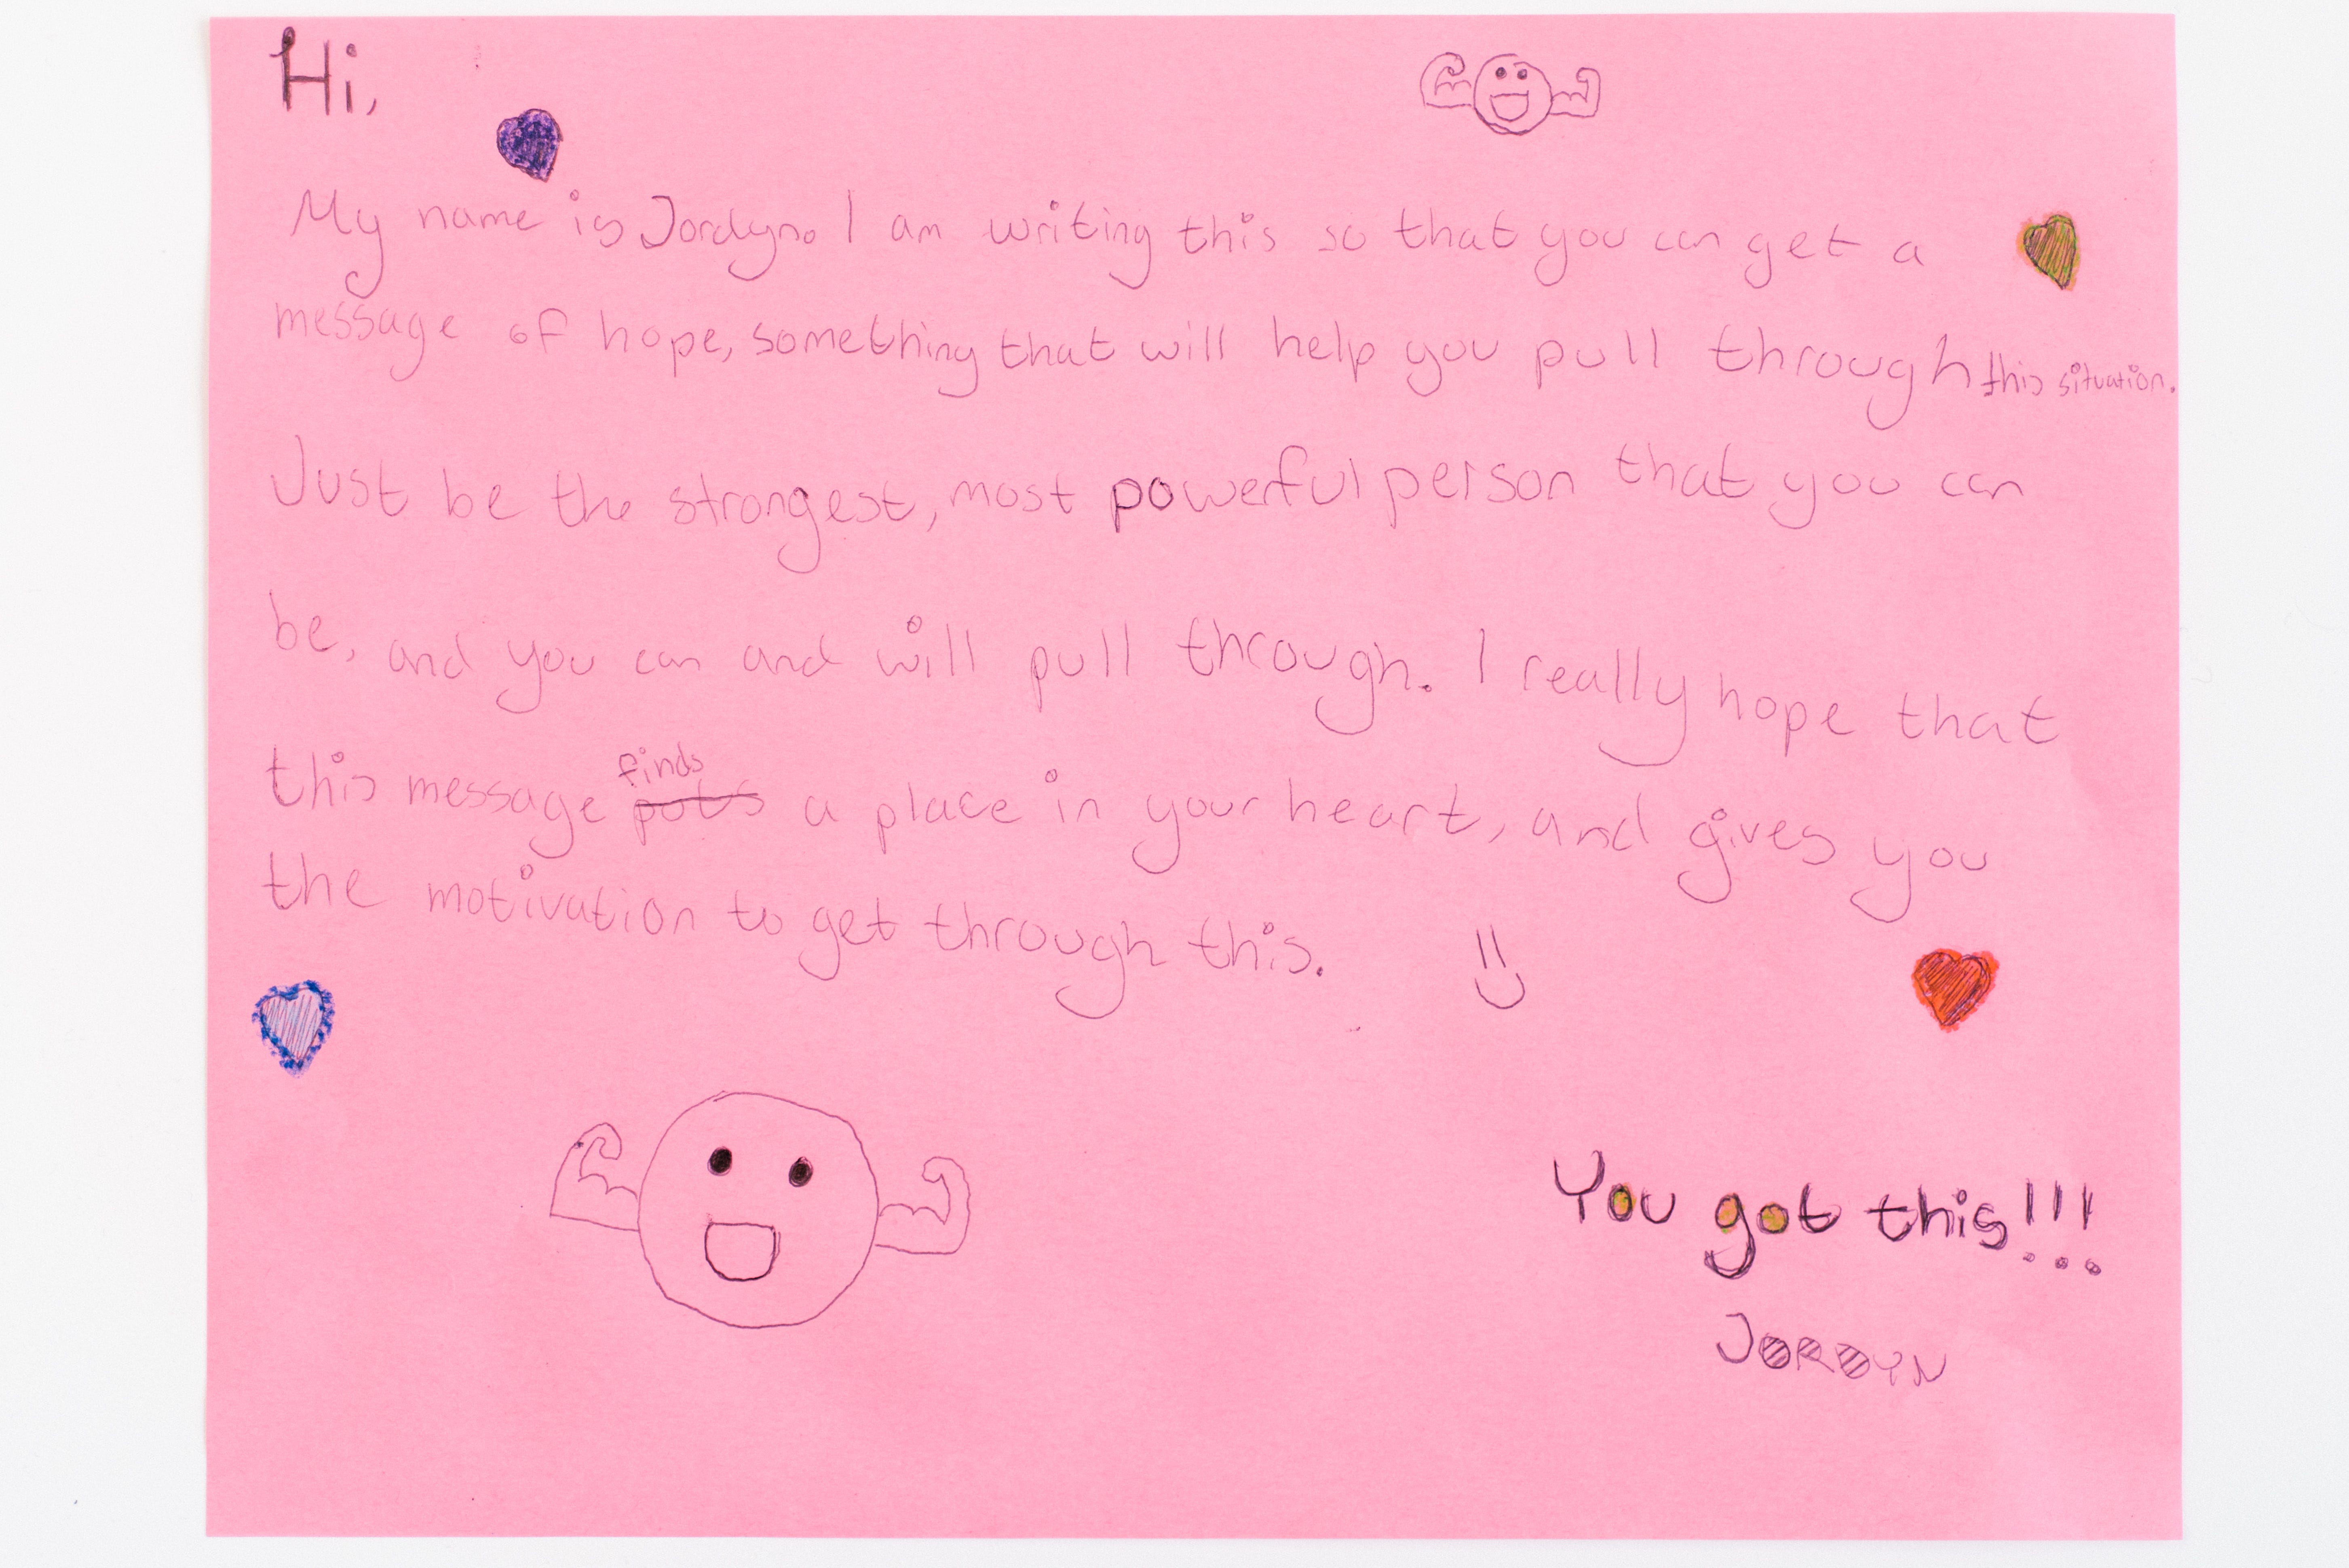 Hi,
My name is Jordyn. I am writing this so that you can get a
message of hope, something that will help you pull through this situation.
Just be the strongest, most powerful person that you can
be, and you can and will pull through. I really hope that
this message finds puts a place in your heart, and gives you
the motivation to get through this. =)
You got this!!!
JORDYN